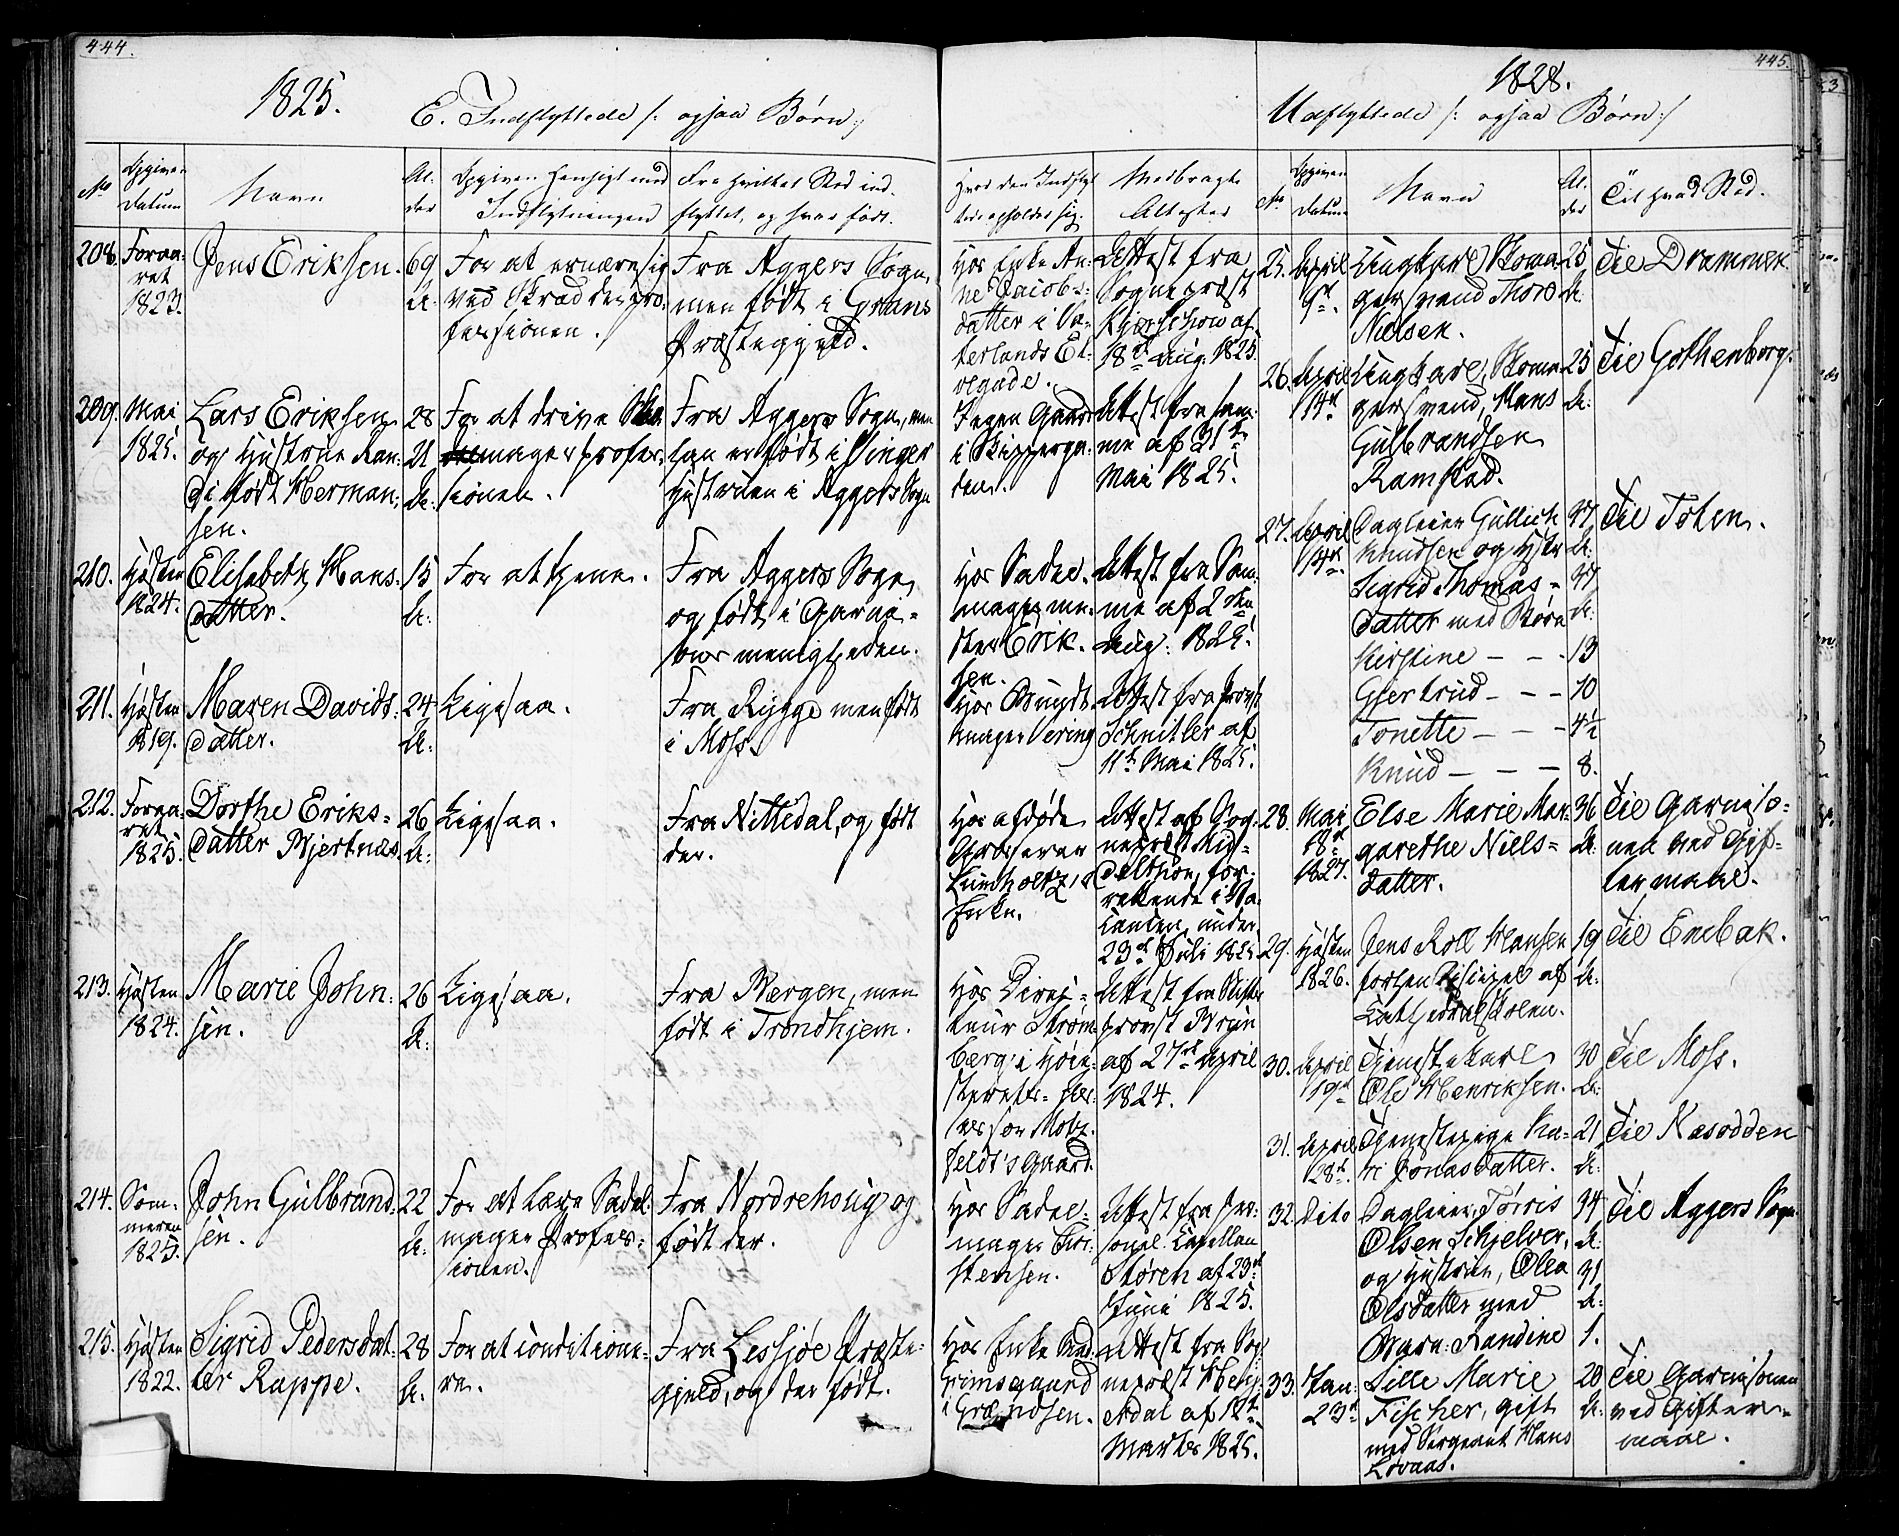 444.
1825.
E. Indflyttede /: ogsaa Børn :/
No
Opgiven Datum
Navn
Alder
Opgiven Hensigt med Indflytningen
Fra hvilket Sted indflyttet, og hvor født.
Hvor den Indflyttede opholder sig.
Medbragte Attester
208. Foraaret 1823.
Jens Eriksen.
69 A:
For at ernære sig ved Skrædderprofessionen.
Fra Aggers Sogn, men født i Grans Præstegjeld.
Hos Enke Anne Jacobsdatter i Vaterlands Elvegade.
Attest fra Sognepræst af 18de Aug: 1825.
209. Mai 1825.
Lars Eriksen og Hustrue Randi født Hermansen.
28 21 A:
For at drive magerprofessionen.
Fra Aggers Sogn, men han er født i Vinger Hustruen i Aggers Sogn
Egen Gaard i Skippergaden.
Attest fra samme af 31te Mai 1825.
210. Høsten 1824.
Elisabeth Hansdatter.
15 A:
For at tjene.
Fra Aggers Sogn, og født i Garnisonsmenigheden.
Hos Sadelmagermester Eriksen.
Attest fra Samme af 2den Aug: 1825.
211. Høsten 1819.
Maren Davidsdatter.
24 A:
Ligesaa.
Fra Rygge men født i Moss.
Hos Bundtmager Vering
Attest fra Provst Schnitler af 11te Mai 1825.
212. Foraaret 1825.
Dorthe Eriksdatter Bjertnæs
26 A:
Ligesaa.
Fra Nittedal, og født der.
Hos afdøde Grosserer Lumholtz's Enke.
Attest af Sognepræst Middelthon, forrettende i Vacancen, under 23de Juli 1825
213. Høsten 1824.
Marie Johnsen.
26 A:
Ligesaa.
Fra Bergen, men født i Trondhjem.
Hos Directeur Strømberg i Høiesterets-Assessor Motzfeldt's Gaard.
Attest fra Stiftsprovst Brun af 27de April 1824.
214. Sommeren 1825.
John Gulbrandsen.
22 A:
For at lære Sadelmager Professionen.
Fra Nordrehoug og født der.
Hos Sadelmager Thorstensen.
Attest fra personel Capellan Støren af 29de Juni 1825.
215. Høsten 1822.
Sigrid Pedersdatter Rappe.
28 A:
For at conditionere.
Fra Lessjøe Præstegjeld, og der født.
Hos Enke i Grændsen.
Attest fra Sognepræst af 12te Marts 1825.
445.
1828.
Udflyttede /: ogsaa Børn :/
No
Opgiven Datum
Navn
Alder
Til hvad Sted.
25. April 9de
Ungkarl Skomagersvend Thore Nielsen.
25 A:
Til Drammen.
26. April 14de
Ungkarl, Skomagersvend, Hans Gulbrandsen Ramstad.
25 A:
Til Gothenborg.
27. April 14de
Dagleier Gullich Knudsen og Hstr Sigrid Thomasdatter med Børn
37 A:
37 A:
Til Toten.
Kerstine - - - 13
Gjertrud - - - 10
Tonette - - - 4½
Knud - - - 8.
28. Mai 18de 1827.
Else Marie Margarethe Nielsdatter.
36 A:
Til Garnisonen ved Giftermaal.
29. Høsten 1826.
Jens Roll Hansen forhen Discipel af Cathedralskolen.
19 A:
Til Enebak.
30. April 19de
Tjenestekarl Ole Henriksen.
30 A:
Til Moss.
31. April 28de
Tjenestepige Kari Jonasdatter.
21 A:
Til Næsodden
32. Dito
Dagleier, Tørris Olsen Schjelver, og Hustrue, Olea Olsdatter med Barn: Randine
34 A:
31 A:
1.
Til Aggers Sogn
33. Jan: 23de
Sille Marie Fischer, gift med Sergeant Hans Lovaas.
20 A:
Til Garnisonen ved Giftermaal.